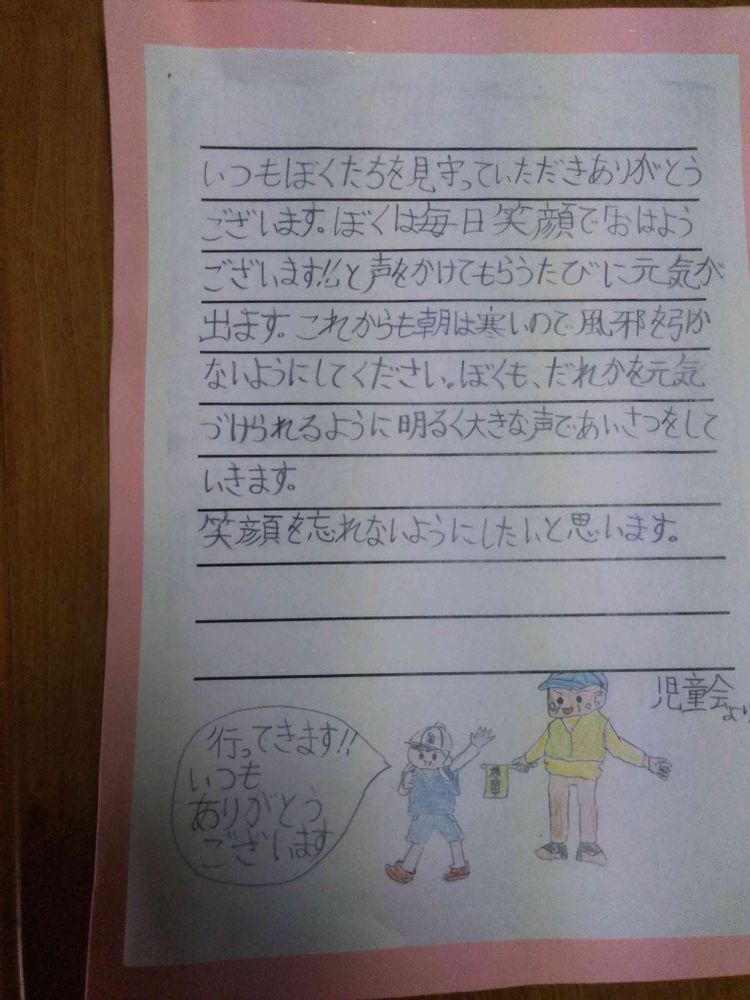 いつもぼくたちを見守っていただきありがとう
ございます。ぼくは毎日笑顔で「おはよう
ございます!!」と声をかけてもらうたびに元気が
出ます。これからも朝は寒いので風邪を引か
ないようにしてください。ぼくも、だれかを元気
づけられるように明るく大きな声であいさつをして
いきます。
笑顔を忘れないようにしたいと思います。
児童会より
行ってきます!!
いつも
ありがとう
ございます